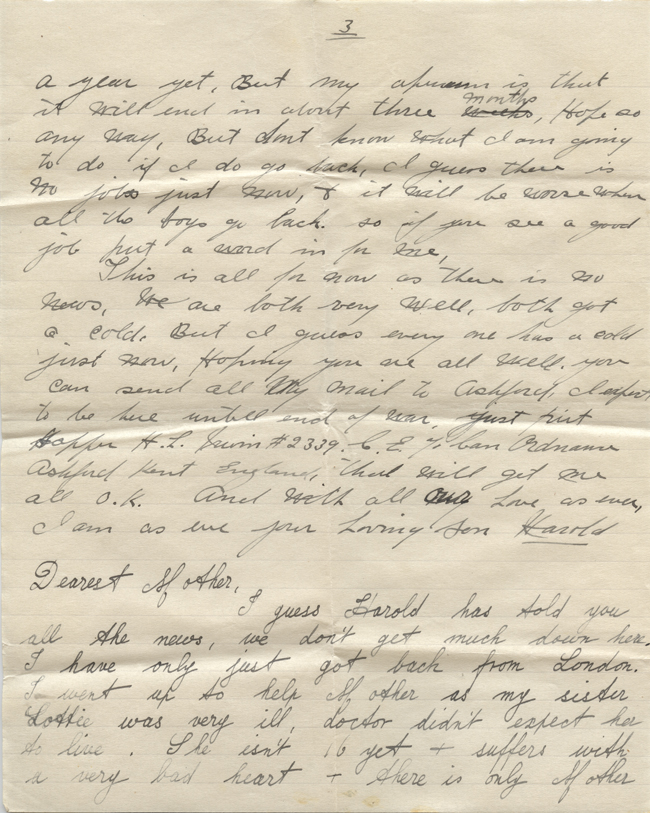 3
a year yet, But my is that
it will end in about three months, Hope so
any way, But dont know what I am going
to do if I do go back, I guess there is
no jobs just now, & it will be worse when
all the boys go back. so if you see a good
job put a word in for me,
This is all for now as there is no
news, We are both very well, both got
a cold. But I guess every one has a cold
just now, Hoping you are all well. you
can send all My mail to Ashford, I expect
to be here untill end of war, just put
Hopper H.L. #2339. C. E. F. Can Ordnance
Ashford Kent England, that will get me
all O.K. And with all our Love as ever,
I am as ever your Loving Son Harold
Dearest Mother,
I guess Harold has told you
all the news, we don't get much down here.
I have only just got back from London.
I went up to help Mother as my sister
Lottie was very ill, doctor didn't expect her
to live. She isn't 16 yet + suffers with
a very bad heart + there is only Mother